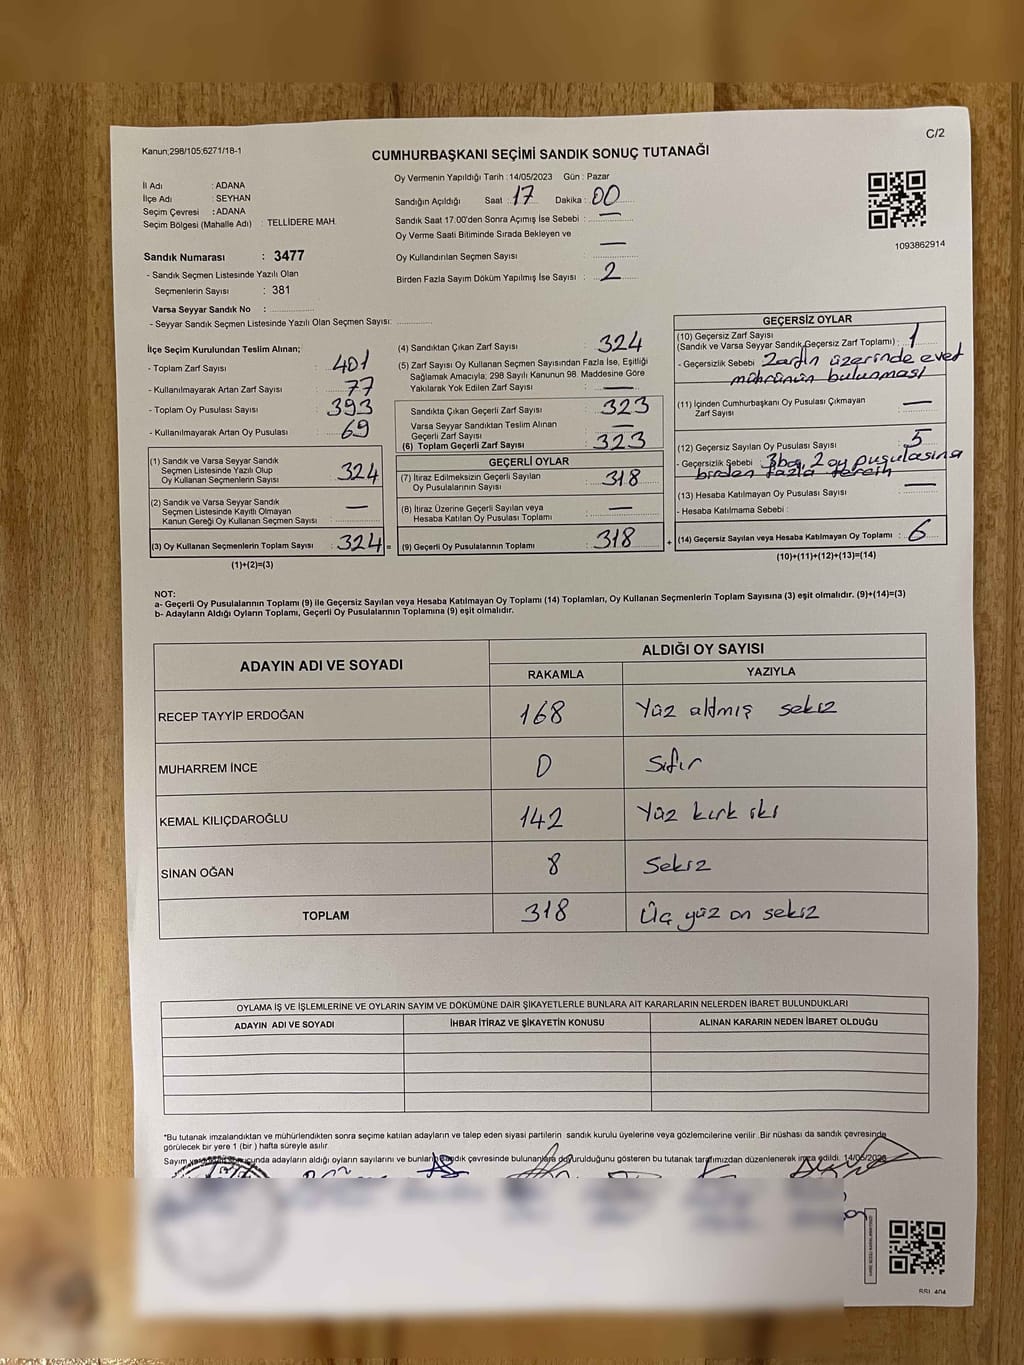 C/2
Kanun;298/105;6271/18-1
CUMHURBAŞKANI SEÇİMİ SANDIK SONUÇ TUTANAĞI
İl Adı : ADANA
İlçe Adı : SEYHAN
Seçim Çevresi : ADANA
Seçim Bölgesi (Mahalle Adı) : TELLİDERE MAH.
Sandık Numarası : 3477
- Sandık Seçmen Listesinde Yazılı Olan
Seçmenlerin Sayısı : 381
Varsa Seyyar Sandık No :
- Seyyar Sandık Seçmen Listesinde Yazılı Olan Seçmen Sayısı:
Oy Vermenin Yapıldığı Tarih :14/05/2023 Gün : Pazar
Sandığın Açıldığı Saat : 17 Dakika : 00
Sandık Saat 17:00'den Sonra Açımış İse Sebebi : —
Oy Verme Saati Bitiminde Sırada Bekleyen ve
Oy Kullandırılan Seçmen Sayısı : —
Birden Fazla Sayım Döküm Yapılmış İse Sayısı : 2
1093862914
İlçe Seçim Kurulundan Teslim Alınan;
- Toplam Zarf Sayısı : 401
- Kullanılmayarak Artan Zarf Sayısı : 77
- Toplam Oy Pusulası Sayısı : 393
- Kullanılmayarak Artan Oy Pusulası : 69
(1) Sandık ve Varsa Seyyar Sandık
Seçmen Listesinde Yazılı Olup
Oy Kullanan Seçmenlerin Sayısı : 324
(2) Sandık ve Varsa Seyyar Sandık
Seçmen Listesinde Kayıtlı Olmayan
Kanun Gereği Oy Kullanan Seçmen Sayısı : —
(3) Oy Kullanan Seçmenlerin Toplam Sayısı : 324 =
(1)+(2)=(3)
(4) Sandıktan Çıkan Zarf Sayısı : 324
(5) Zarf Sayısı Oy Kullanan Seçmen Sayısından Fazla İse, Eşitliği
Sağlamak Amacıyla; 298 Sayılı Kanunun 98. Maddesine Göre
Yakılarak Yok Edilen Zarf Sayısı : —
Sandıkta Çıkan Geçerli Zarf Sayısı : 323
Varsa Seyyar Sandıktan Teslim Alınan
Geçerli Zarf Sayısı : —
(6) Toplam Geçerli Zarf Sayısı : 323
GEÇERLİ OYLAR
(7) İtiraz Edilmeksizin Geçerli Sayılan
Oy Pusulalarının Sayısı : 318
(8) İtiraz Üzerine Geçerli Sayılan veya
Hesaba Katılan Oy Pusulası Toplamı : —
(9) Geçerli Oy Pusulalarının Toplamı : 318 +
GEÇERSİZ OYLAR
(10) Geçersiz Zarf Sayısı
(Sandık ve Varsa Seyyar Sandık Geçersiz Zarf Toplamı) : 1
- Geçersizlik Sebebi : Zarfın üzerinde evet
mührünün bulunması
(11) İçinden Cumhurbaşkanı Oy Pusulası Çıkmayan
Zarf Sayısı : —
(12) Geçersiz Sayılan Oy Pusulası Sayısı : 5
- Geçersizlik Sebebi : 3 boş, 2 oy pusulasına
birden fazla tercih
(13) Hesaba Katılmayan Oy Pusulası Sayısı : —
- Hesaba Katılmama Sebebi :
(14) Geçersiz Sayılan veya Hesaba Katılmayan Oy Toplamı : 6
(10)+(11)+(12)+(13)=(14)
NOT:
a- Geçerli Oy Pusulalarının Toplamı (9) ile Geçersiz Sayılan veya Hesaba Katılmayan Oy Toplamı (14) Toplamları, Oy Kullanan Seçmenlerin Toplam Sayısına (3) eşit olmalıdır. (9)+(14)=(3)
b- Adayların Aldığı Oyların Toplamı, Geçerli Oy Pusulalarının Toplamına (9) eşit olmalıdır.
ADAYIN ADI VE SOYADI ALDIĞI OY SAYISI
RAKAMLA YAZIYLA
RECEP TAYYİP ERDOĞAN 168 Yüz altmış sekiz
MUHARREM İNCE 0 Sıfır
KEMAL KILIÇDAROĞLU 142 Yüz kırk iki
SİNAN OĞAN 8 Sekiz
TOPLAM 318 Üç yüz on sekiz
OYLAMA İŞ VE İŞLEMLERİNE VE OYLARIN SAYIM VE DÖKÜMÜNE DAİR ŞİKAYETLERLE BUNLARA AİT KARARLARIN NELERDEN İBARET BULUNDUKLARI
ADAYIN ADI VE SOYADI İHBAR İTİRAZ VE ŞİKAYETİN KONUSU ALINAN KARARIN NEDEN İBARET OLDUĞU
*Bu tutanak imzalandıktan ve mühürlendikten sonra seçime katılan adayların ve talep eden siyasi partilerin sandık kurulu üyelerine veya gözlemcilerine verilir .Bir nüshası da sandık çevresinde
görülecek bir yere 1 (bir ) hafta süreyle asılır
Sayım adayların aldığı oyların sayılarını ve bunların sandık çevresinde bulunanlara duyurulduğunu gösteren bu tutanak tarafımızdan düzenlenerek imza edildi. 14/05/2023